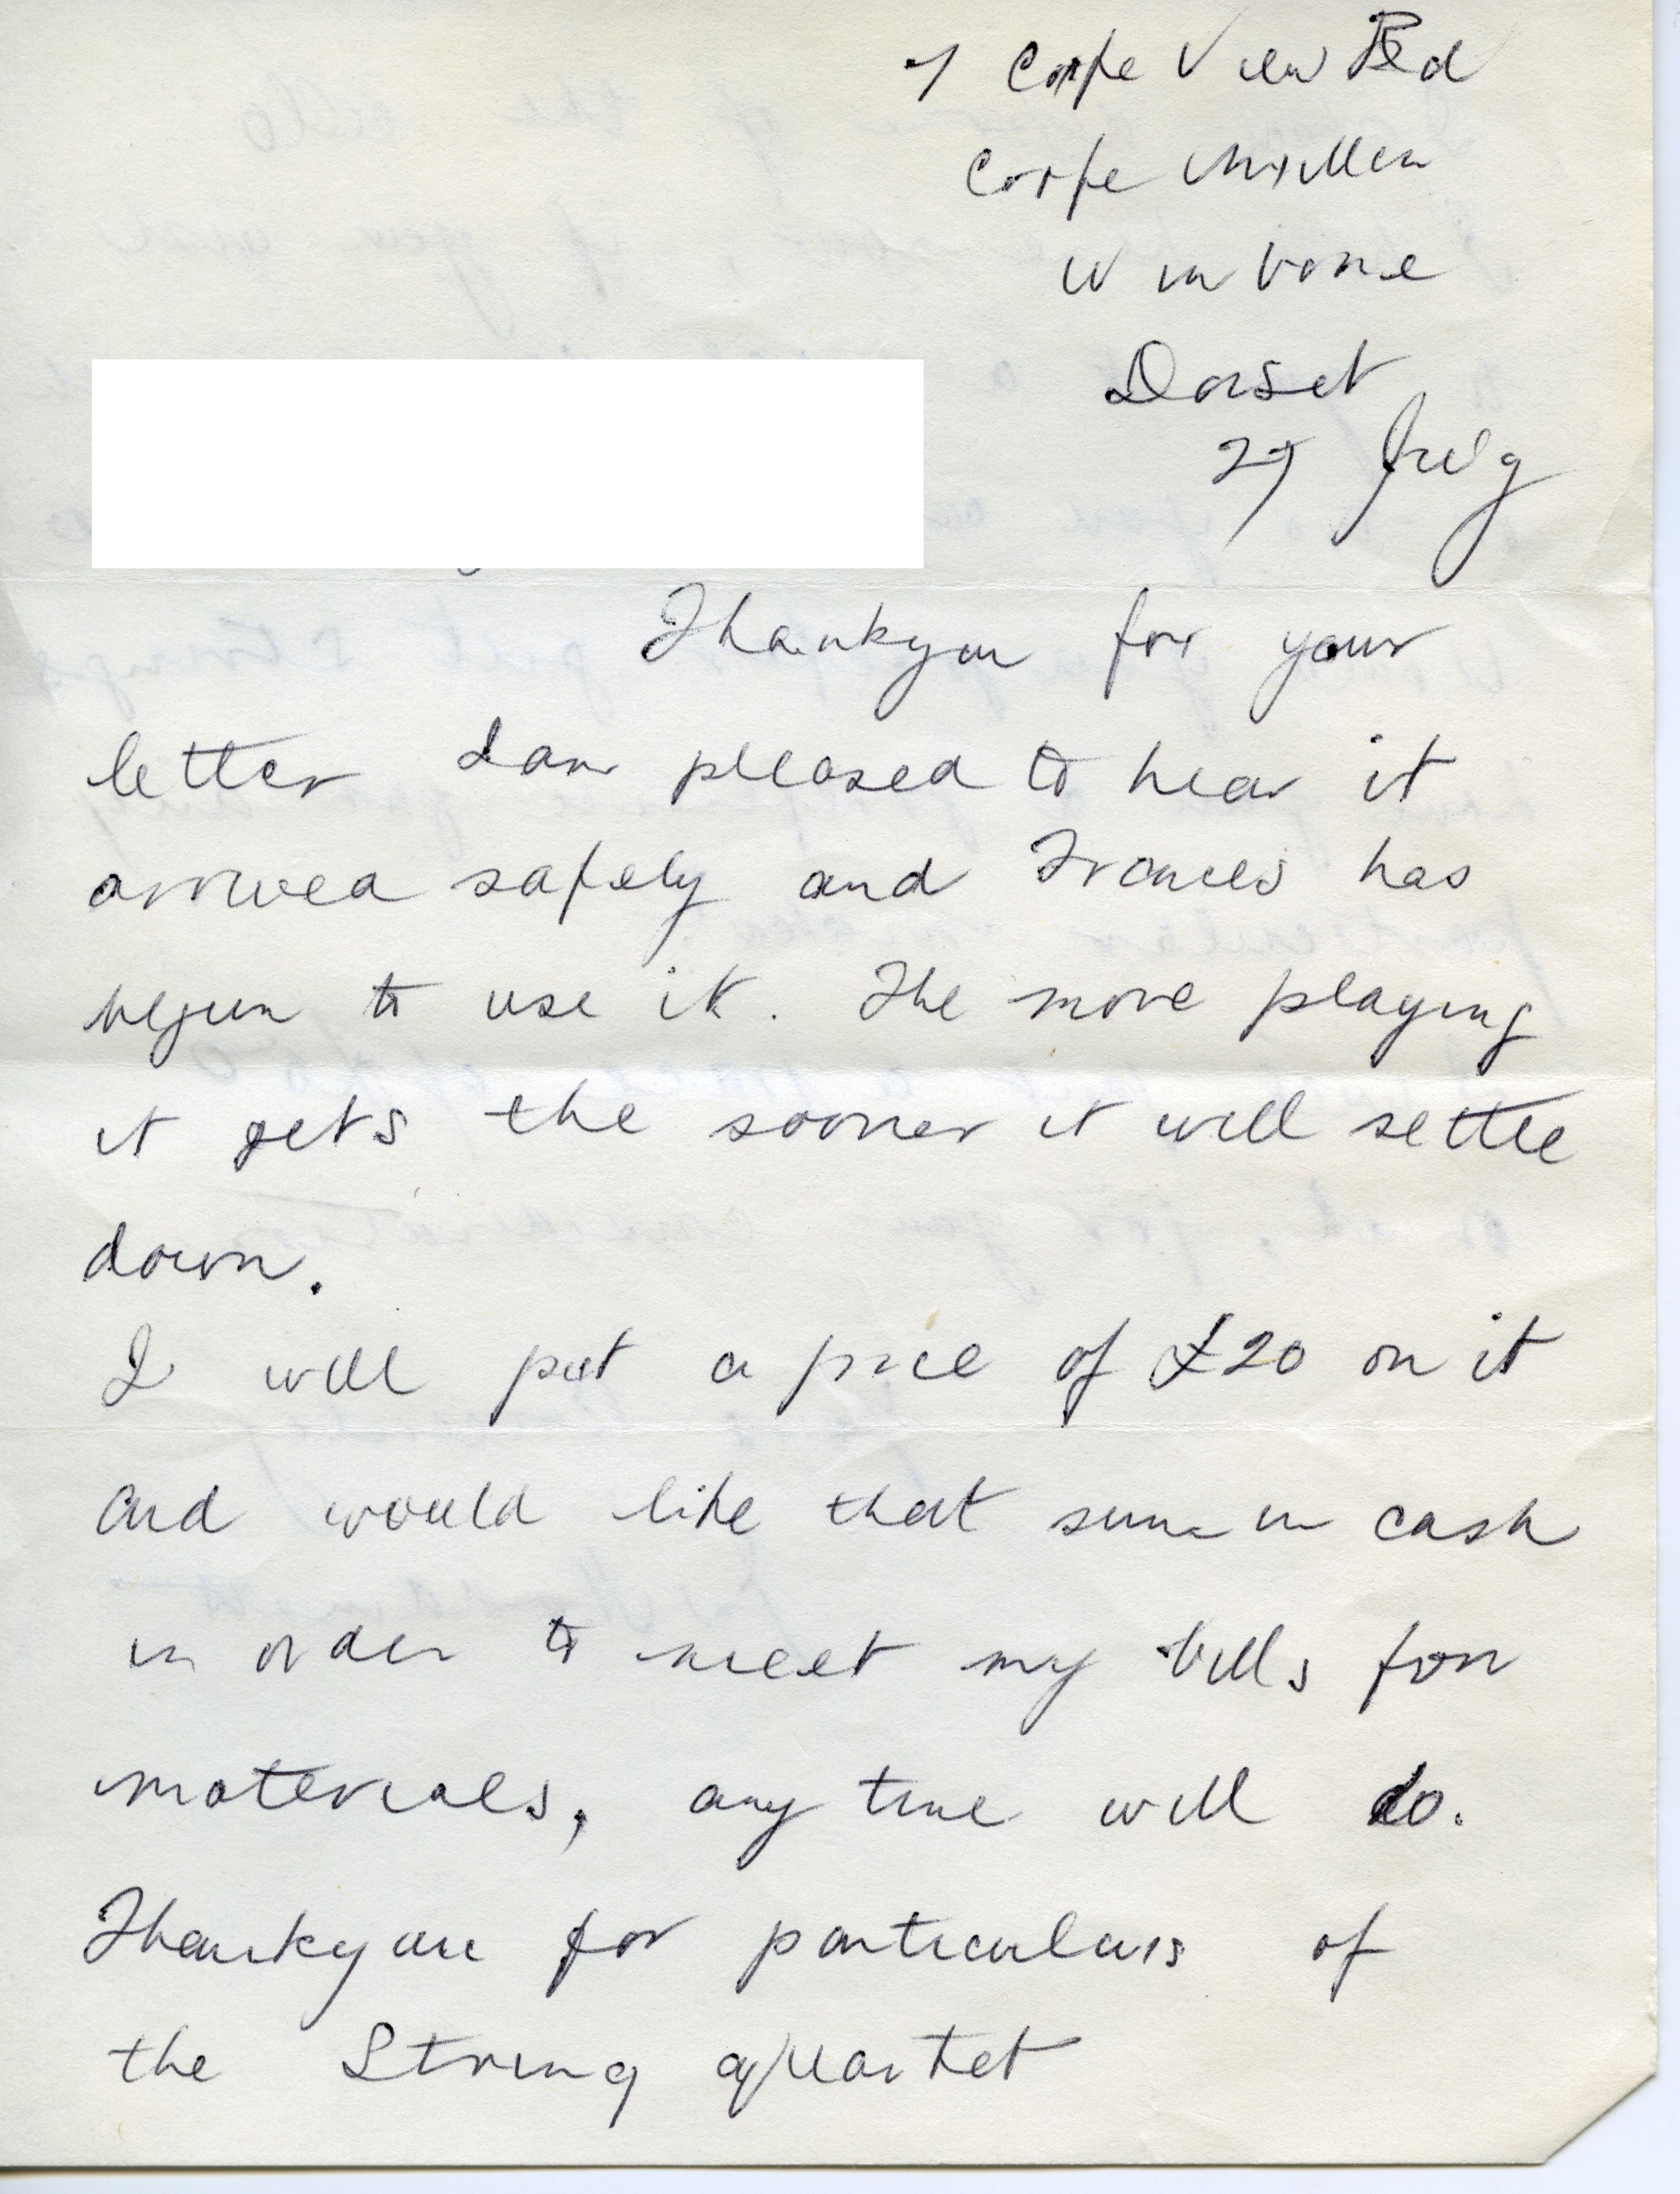 7 Corfe View Rd
Corfe Mullen
Wimborne
Dorset
27 July
Thankyou for your
letter I am pleased to hear it
arrived safely and Frances has
begun to use it. The more playing
it gets the sooner it will settle
down.
I will put a price of £20 on it
and would like that sum in cash
in order to meet my bills for
materials, any time will do.
Thankyou for particulars of
the String quartet